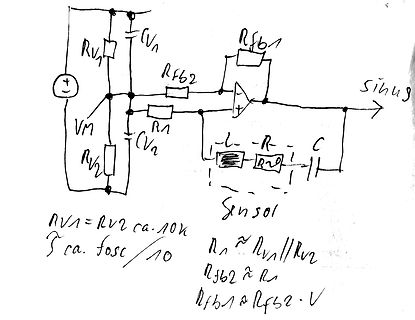 Rfb1
RV1
CV1
Rfb2
sinus
VM
R1
CV2
RV2
L
R
C
Sensor
RV1 = RV2 ca. 10k
ca. fosc/10
R1 ≈ RV1//RV2
Rfb2 ≈ R1
Rfb1 ≈ Rfb2 · V